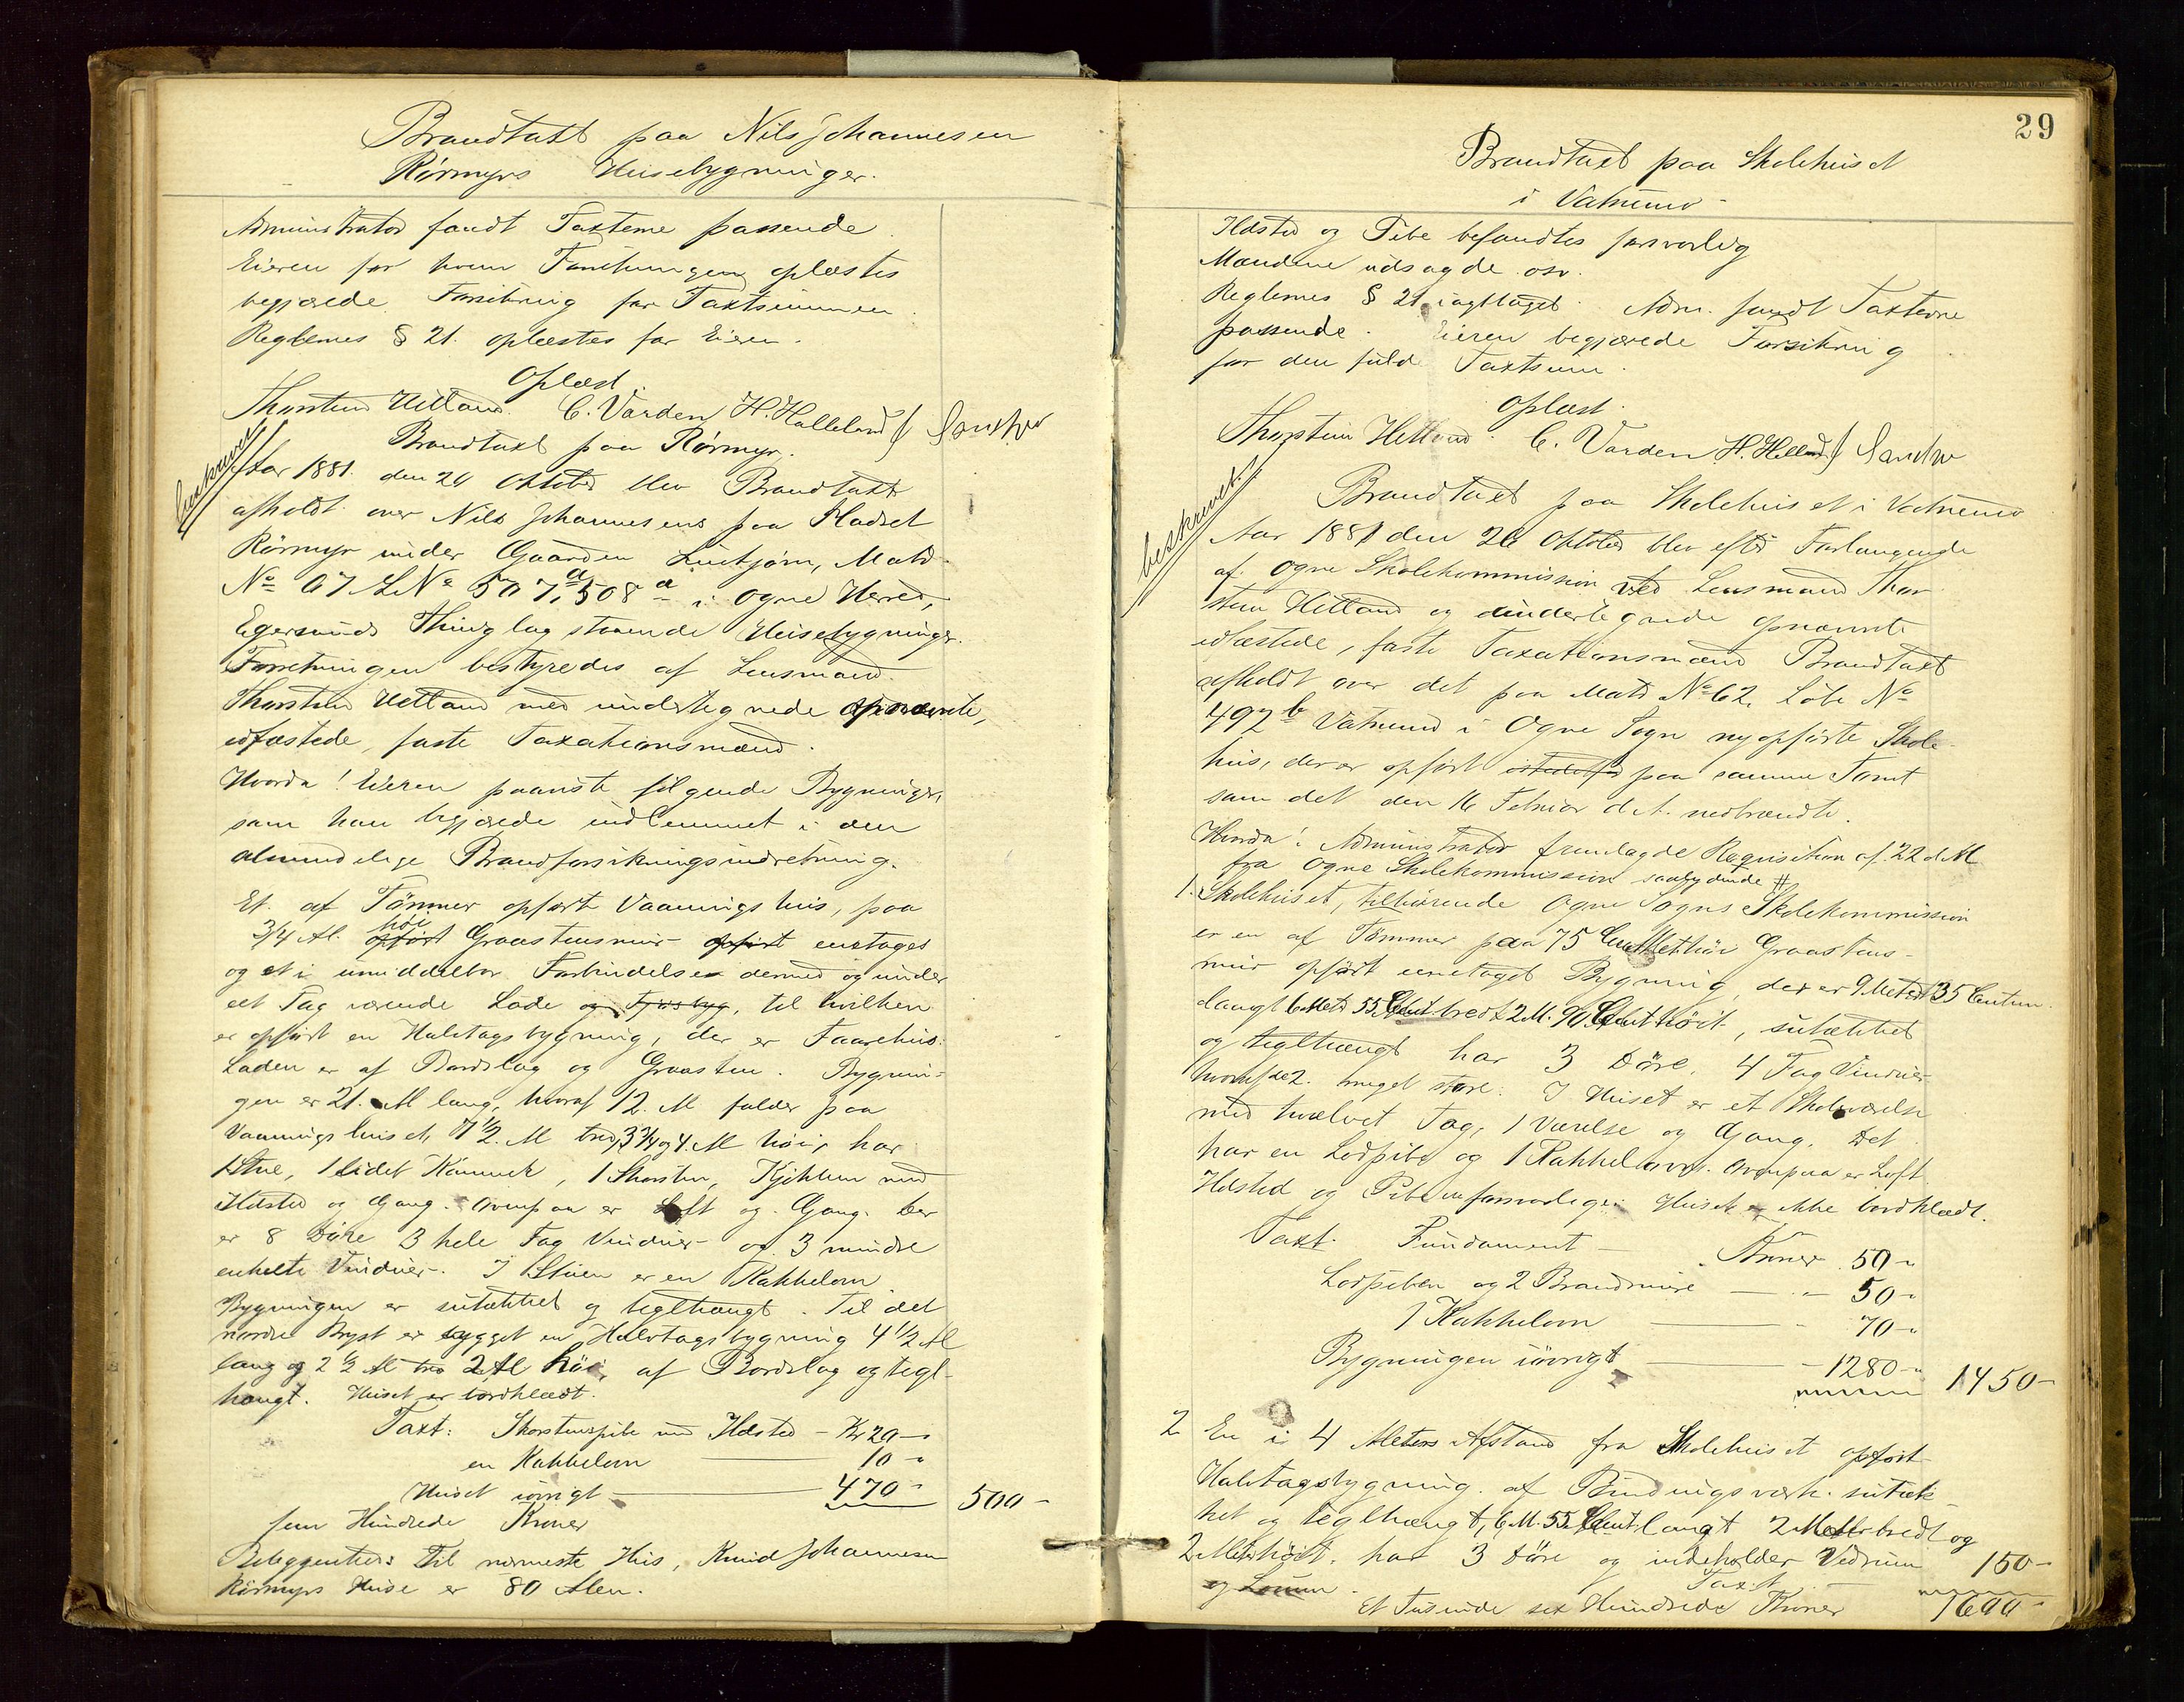 Brandtaxt paa Nils Johannesen
Rörmyrs Husebygninger.
Administrator fandt Taxterne passende.
Eieren for hvem Forretningen oplæstes
begjærede Forsikring for Taxtsummen.
Reglernes § 21. oplæstes for Eieren.
Oplæst.
Thorsten Hetland. C. Varden H. Halleland
Brandtaxt paa Rörmyr.
beskrevet
Aar 1881. den 26 Oktober blev Brandtaxt
afholdt over Nils Johannesens paa Pladset
Rörmyr under Gaarden Luetjörn, Matr.
No 67 LNo 507a, 508a i Ogne Herred,
Egersunds Thinglag staaende Husebygninger.
Forretningen bestyredes af Lensmand
Thorsten Hetland med undertegnede opnævnte,
edfæstede, faste Taxationsmænd.
Hvorda! Eieren paaviste fölgende Bygninger,
som han begjærede indlemmet i den
almindelige Brandforsikringsindretning.
Et af Tömmer opfört Vaaningshus, paa
3/4 Al. opfört höi Graastensmur opfört enetages
og et i umiddelbar Forbindelse dermed og under
eet Tag værende Lade og Fjøsbyg, til hvilken
er opfört en Halvtagsbygning, der er Faarehus.
Laden er af Bordslag og Graasten. Bygnin-
gen er 21. Al lang, hvoraf 12. Al falder paa
Vaaningshuset, 7 1/2. Al bred, 3 3/4 og 4. Al höi, har
1 Stue, 1 lidet Kammer, 1 Skorsten, Kjökken med
Ildsted og Gang. Ovenpaa er Loft og Gang. Der
er 8 Döre 3 hele Fag Vinduer og 3 mindre
enkelte Vinduer. I Stuen er en Kakkelovn
Bygningen er sutækket og teglhængt. Til det
nordre Bryst er bygget en Halvtagsbygning 4 1/2 Al
lang og 2 1/2 Al bred 2 Al höi, af Bordslag og tegl-
hængt. Huset er bordklædt.
Taxt: Skorstenspibe med Ildsted - Kr 20 -
en Kakkelovn 10 -
Huset iövrigt 470 - 500 -
fem Hundrede Kroner
Beliggenhed: Til nærmeste Hus, Knud Johannesen
Rörmyrs Huse er 80 Alen.
29
Brandtaxt paa Skolehuset
i Vatnemo -
Ildsted og Pibe befandtes forsvarlig
Mændene udsagde osv.
Reglernes § 21 iagttaget. Adm. fandt Taxterne
passende. Eieren begjærede Forsikring
for den fulde Taxtsum.
Oplæst.
Thorstein Hetland. C. Varden H. Helland
beskrevet.
Brandtaxt paa Skolehuset i Vatnemo
Aar 1881 den 26 Oktober blev efter Forlangende
af Ogne Skolekommission ved Lensmand Thor-
sten Hetland og undertegnede opnævnte
edfæstede, faste Taxationsmænd Brandtaxt
afholdt over det paa Matr No 62, Löbe No
497b Vatnemo i Ogne Sogn nyopförte Skole-
hus, der er opfört istedetfor paa samme Tomt
som det den 16 Februar d. A. nedbrændte.
Hvorda! Administrator fremlagde Requisition af 22 d. M.
fra Ogne Skolekommission saalydende #
1. Skolehuset, tilhörende Ogne Sogns Skolekommission
er en af Tömmer paa 75 Centimet. höi Graastens-
mur opfört enetages Bygning, der er 9 Meter 35 Centim.
langt 6 Met. 55 Cent. bredt 2 M. 90 Cent. höit, sutækket
og teglhængt har 3 Döre, 4 Fag Vinduer
hvoraf de 2. meget store. I Huset er et Skoleværelse
med hvælvet Tag, 1 Værelse og Gang. Det
har en Lodpibe og 1 Kakkelovn. Ovenpaa er Loft
Ildsted og Pibe er forsvarlige. Huset er ikke bordklædt.
Taxt. Fundament - Kroner 50 -
Lodpiben og 2 Brandmure 50 -
1 Kakkelovn 70 -
Bygningen iövrigt 1280 - 1450 -
2 En i 4 Meters Afstand fra Skolehuset opfört
Halvtagsbygning af Bindingsværk sutæk-
ket og teglhængt, 6 M. 55 Cent. langt 2 Meter bredt og
2 Meter höit. har 3 Döre og indeholder Vedrum 150 -
og Taxt
Et Tusinde sex Hundrede Kroner 1600 -